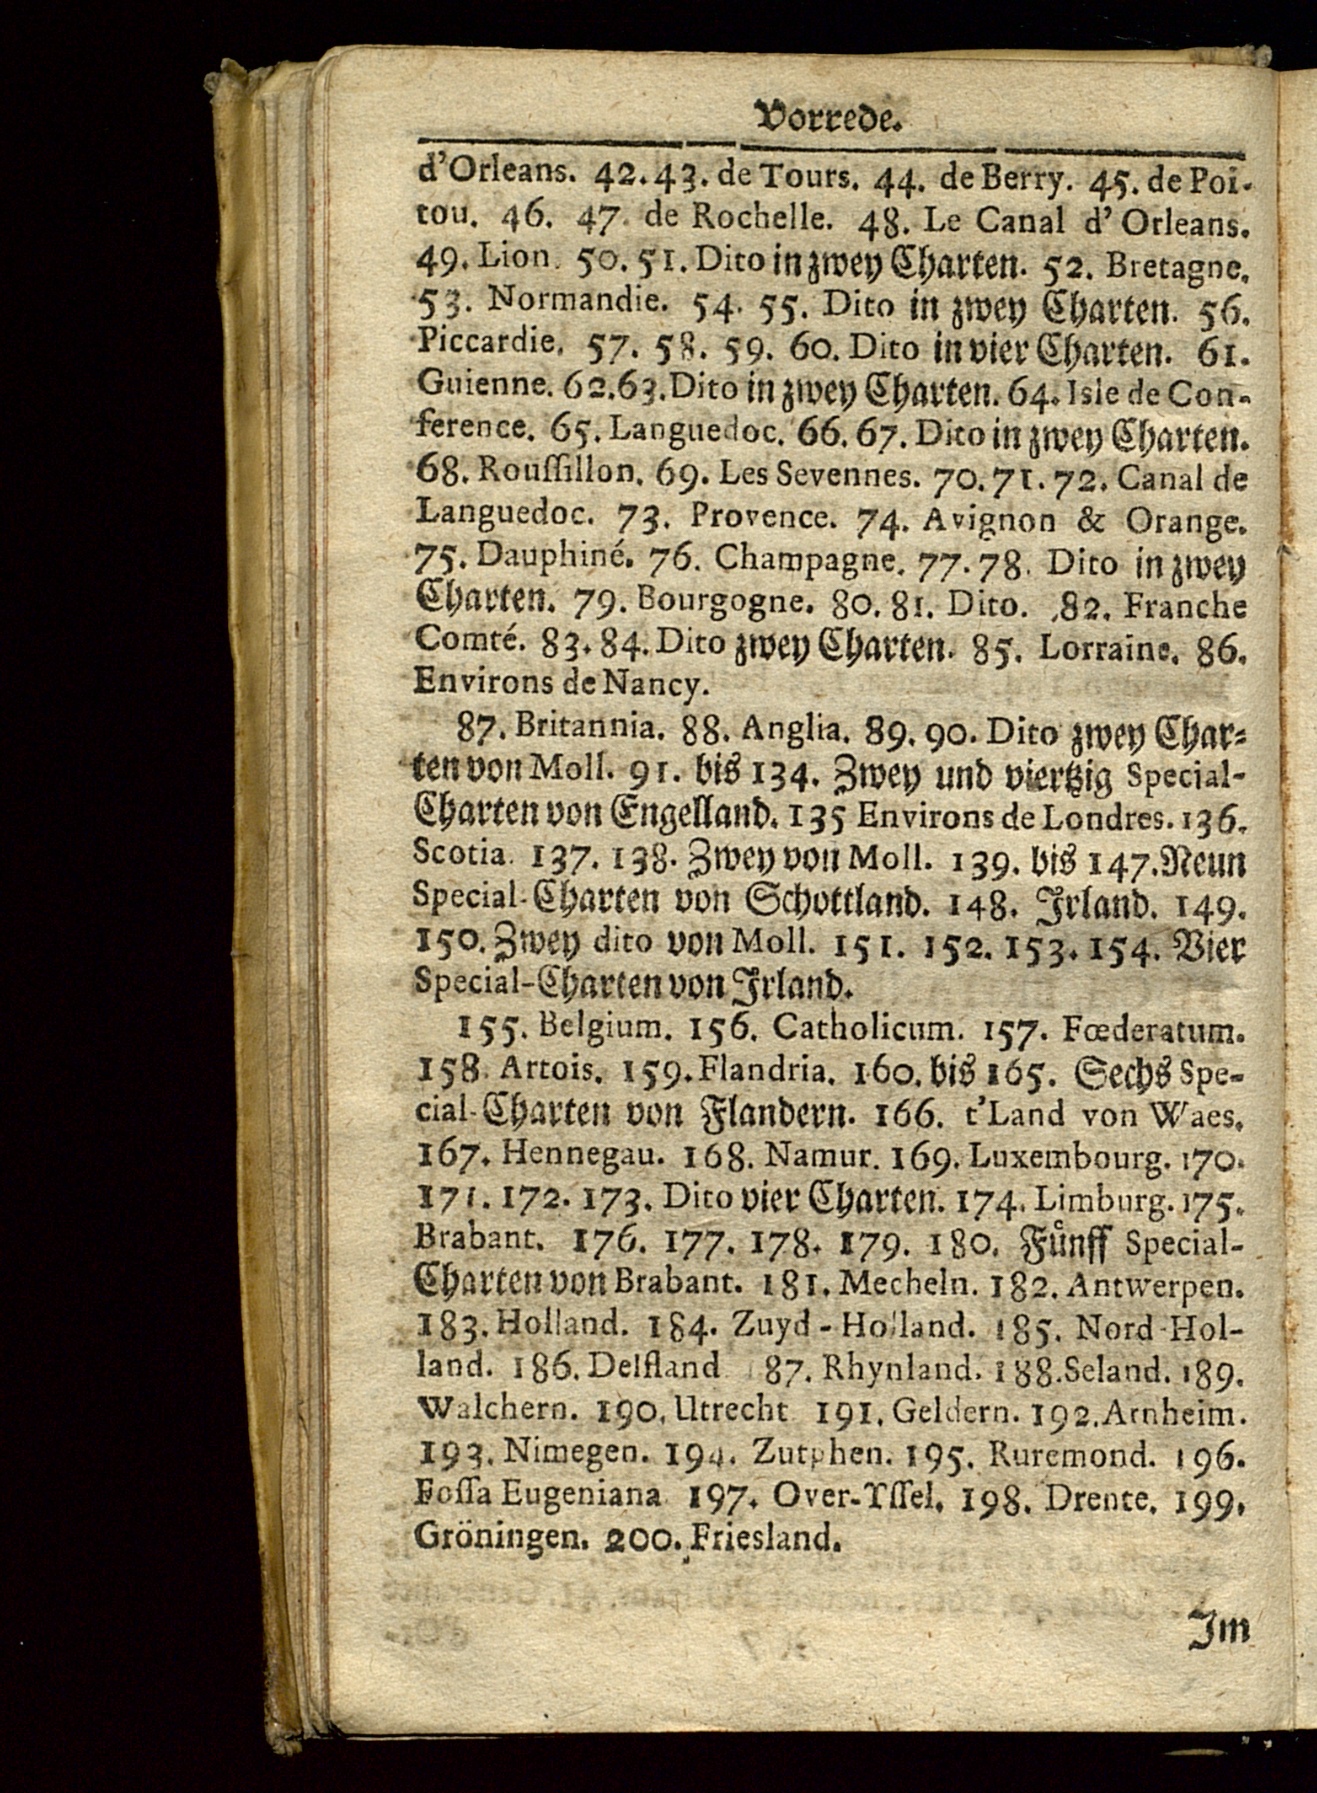 Vorrede.
d'Orleans. 42. 43. de Tours. 44. de Berry. 45. de Poi-
tou. 46. 47. de Rochelle. 48. Le Canal d' Orleans.
49. Lion. 50. 51. Dito in zwey Charten. 52. Bretagne.
53. Normandie. 54. 55. Dito in zwey Charten. 56.
Piccardie. 57. 58. 59. 60. Dito in vier Charten. 61.
Guienne. 62. 63. Dito in zwey Charten. 64. Isle de Con-
ference. 65. Languedoc. 66. 67. Dito in zwey Charten.
68. Rouſſillon. 69. Les Sevennes. 70. 71. 72. Canal de
Languedoc. 73. Provence. 74. Avignon & Orange.
75. Dauphiné. 76. Champagne. 77. 78. Dito in zwey
Charten. 79. Bourgogne. 80. 81. Dito. 82. Franche
Comté. 83. 84. Dito zwey Charten. 85. Lorraine. 86.
Environs de Nancy.
87. Britannia. 88. Anglia. 89. 90. Dito zwey Char-
ten von Moll. 91. bis 134. Zwey und viertzig Special-
Charten von Engelland. 135 Environs de Londres. 136.
Scotia. 137. 138. Zwey von Moll. 139. bis 147. Neun
Special-Charten von Schottland. 148. Irland. 149.
150. Zwey dito von Moll. 151. 152. 153. 154. Vier
Special-Charten von Irland.
155. Belgium. 156. Catholicum. 157. Fœderatum.
158. Artois. 159. Flandria. 160. bis 165. Sechs Spe-
cial-Charten von Flandern. 166. t'Land von Waes.
167. Hennegau. 168. Namur. 169. Luxembourg. 170.
171. 172. 173. Dito vier Charten. 174. Limburg. 175.
Brabant. 176. 177. 178. 179. 180. Fůnff Special-
Charten von Brabant. 181. Mecheln. 182. Antwerpen.
183. Holland. 184. Zuyd-Holland. 185. Nord-Hol-
land. 186. Delfland 87. Rhynland. 188. Seland. 189.
Walchern. 190. Utrecht 191. Geldern. 192. Arnheim.
193. Nimegen. 194. Zutphen. 195. Ruremond. 196.
Foſſa Eugeniana 197. Over-Yſſel. 198. Drente. 199.
Gröningen. 200. Friesland.
Im